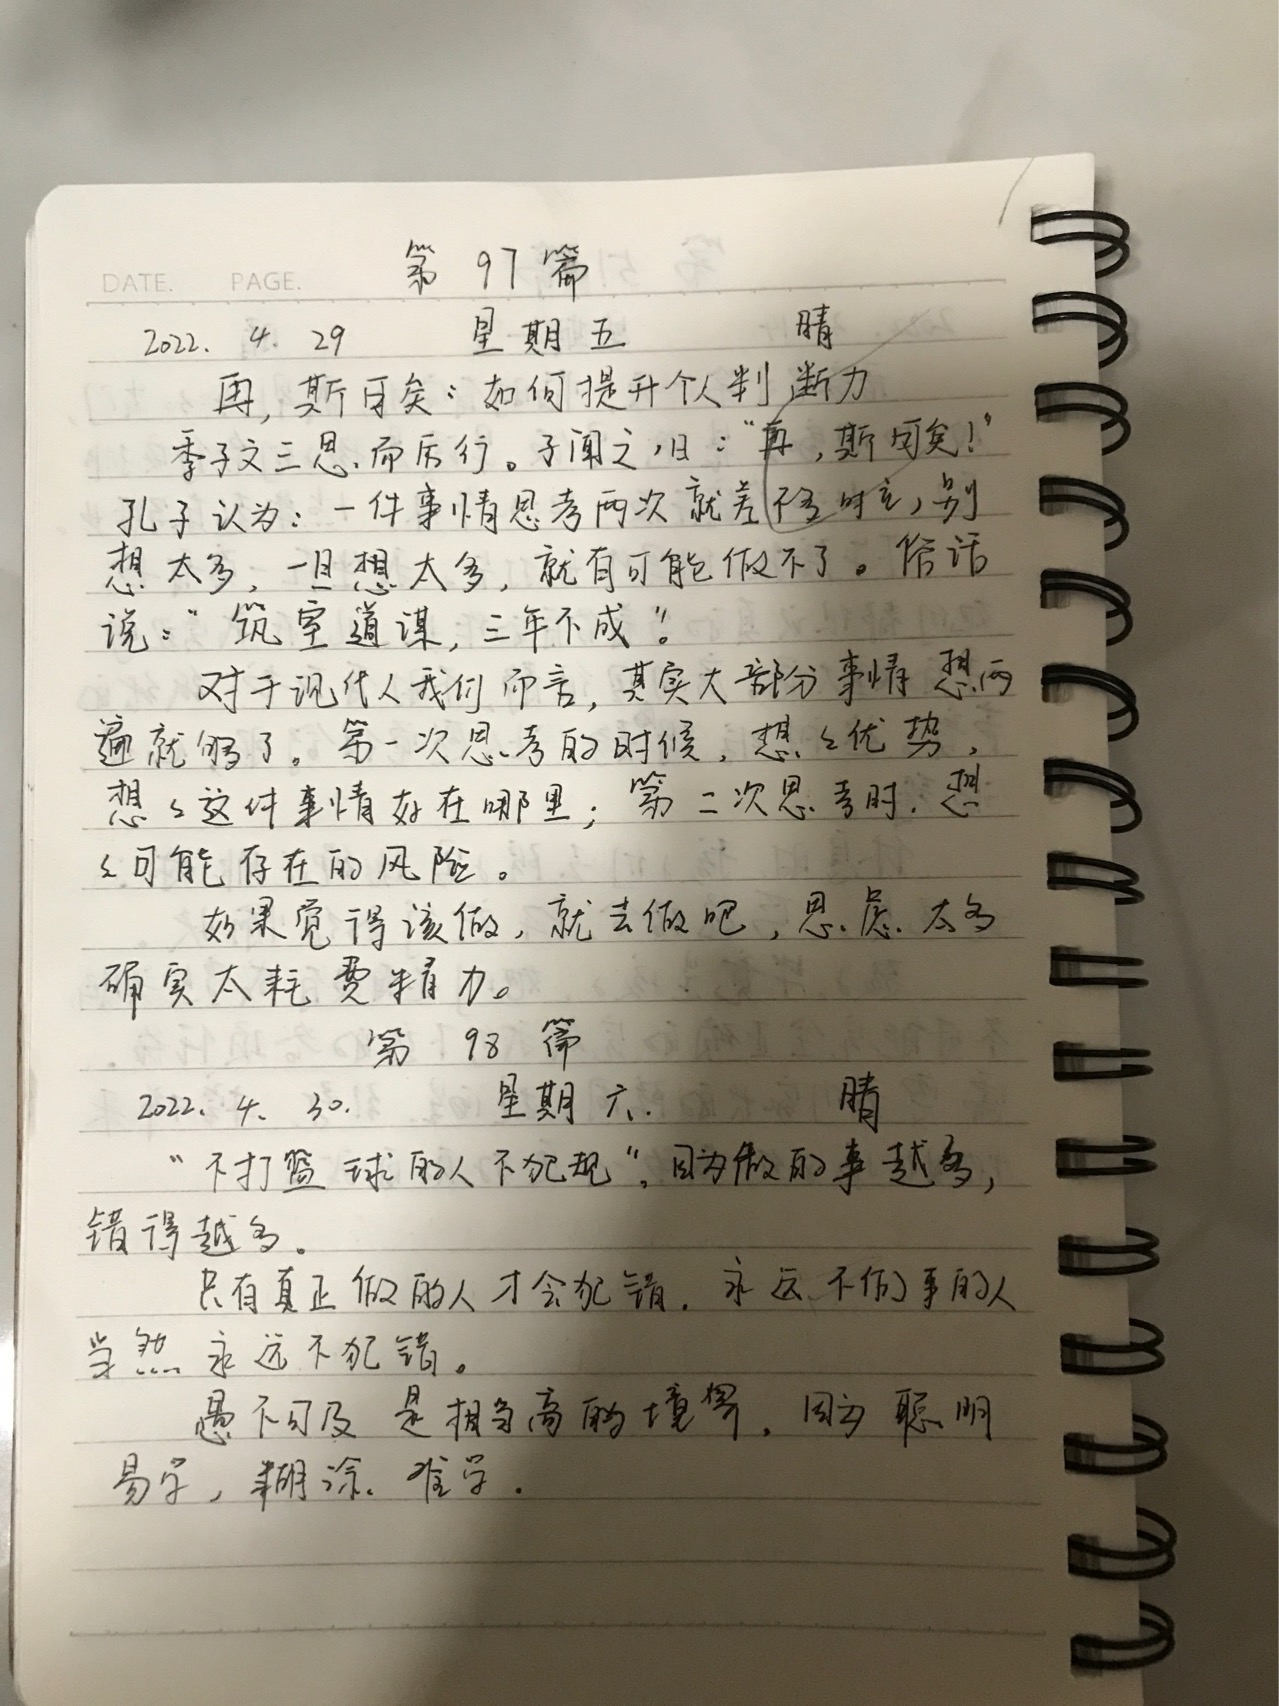 DATE. PAGE. 第 97 篇
2022. 4. 29 星期五 晴
再,斯可矣:如何提升个人判断力
季子文三思而后行。子闻之,曰:“再,斯可矣!”
孔子认为:一件事情思考两次就差不多时立,别
想太多,一旦想太多,就有可能做不了。俗话
说:“筑室道谋,三年不成”。
对于现代人我们而言,其实大部分事情想两
遍就够了。第一次思考的时候,想々优势,
想々这件事情好在哪里;第二次思考时,想
々可能存在的风险。
如果觉得该做,就去做吧,思虑太多
确实太耗费精力。
第 98 篇
2022. 4. 30. 星期六. 晴
“不打篮球的人不犯规”,因为做的事越多,
错得越多。
只有真正做的人才会犯错,永远不做事的人
当然永远不犯错。
愚不可及是相当高的境界,因为聪明
易学,糊涂难学.